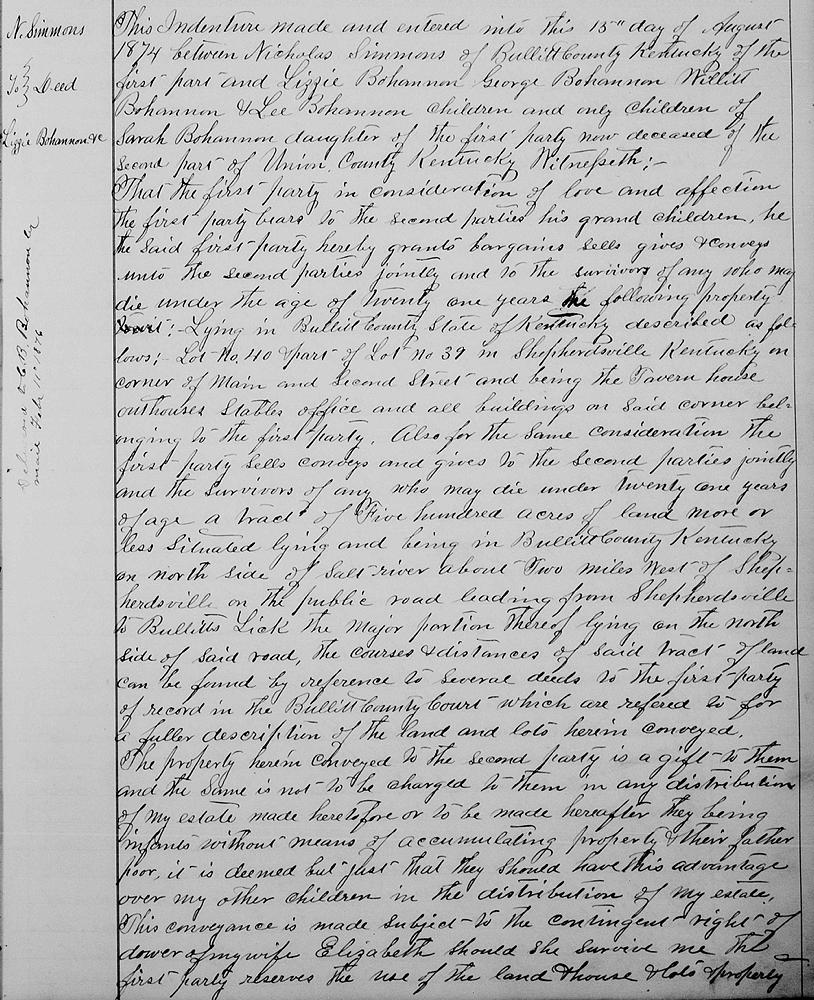 N. Simmons
To } Deed
Lizzie Bohannon &c
Delivered to C. B. Bohannon by
mail Feb 11" 1876
This Indenture made and entered into this 15" day of August
1874 between Nicholas Simmons of Bullitt County Kentucky of the
first part and Lizzie Bohannon George Bohannon Willitt
Bohannon & Lee Bohannon children and only children of
Sarah Bohannon daughter of the first party now deceased of the
second part of Union County Kentucky Witnesseth;-
That the first party in consideration of love and affection
the first party bears to the second parties his grand children, he
the said first party hereby grants bargains sells gives & conveys
unto the second parties jointly and to the survivors of any who may
die under the age of twenty one years the following property
towit;- Lying in Bullitt County State of Kentucky described as fol-
lows;- Lot No. 40 & part of Lot no 39 in Shepherdsville Kentucky on
corner of Main and Second Street and being the Tavern house
outhouses Stables office and all buildings on said corner bel-
onging to the first party. Also for the same consideration the
first party sells conveys and gives to the second parties jointly
and the survivors of any who may die under twenty one years
of age a tract of Five hundred acres of land more or
less situated lying and being in Bullitt County Kentucky
on north side of Salt river about Two miles West of Shep-
herdsville on the public road leading from Shepherdsville
to Bullitts Lick the Major portion thereof lying on the north
side of said road, the courses & distances of said tract of land
can be found by reference to several deeds to the first party
of record in the Bullitt County Court which are refered to for
a fuller description of the land and lots herein conveyed.
The property herein conveyed to the second party is a gift to them
and the same is not to be charged to them in any distribution
of my estate made heretofore or to be made hereafter they being
infants without means of accumulating property & their father
poor, it is deemed but just that they should have this advantage
over my other children in the distribution of my estate,
This conveyance is made subject to the contingent right of
dower of my wife Elizabeth should she survive me the
first party reserves the use of the land & house & lots & property